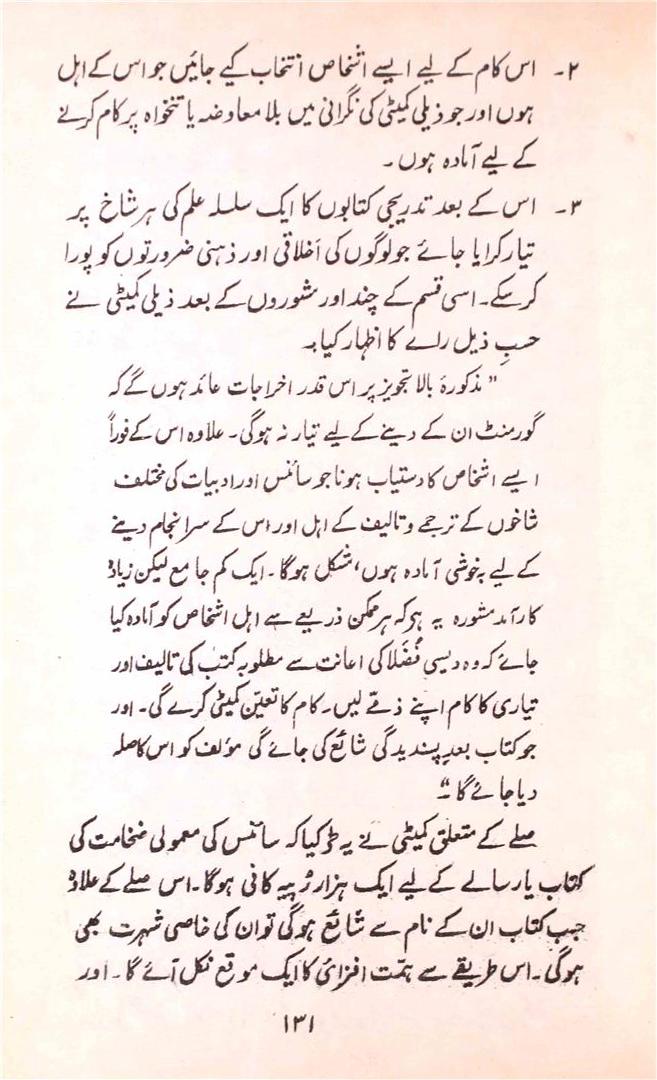 ۲۔ اس کام کے لیے ایسے اشخاص انتخاب کیے جائیں جو اس کے اہل
ہوں اور جو ذیلی کمیٹی کی نگرانی میں بلا معاوضہ یا تنخواہ پر کام کرنے
کے لیے آمادہ ہوں۔
۳۔ اس کے بعد تدریجی کتابوں کا ایک سلسلہ علم کی ہر شاخ پر
تیار کرایا جائے جو لوگوں کی اَخلاقی اور ذہنی ضرورتوں کو پورا
کر سکے۔ اسی قسم کے چند اور مشوروں کے بعد ذیلی کمیٹی نے
حسبِ ذیل رائے کا اظہار کیا:۔
"مذکورۂ بالا تجویز پر اس قدر اخراجات عائد ہوں گے کہ
گورمنٹ ان کے دینے کے لیے تیار نہ ہوگی۔ علاوہ اس کے فوراً
ایسے اشخاص کا دستیاب ہونا جو سائنس اور ادبیات کی مختلف
شاخوں کے ترجمے و تالیف کے اہل اور اس کے سرانجام دینے
کے لیے بہ خوشی آمادہ ہوں، مشکل ہوگا۔ ایک کم جامع لیکن زیادہ
کار آمد مشورہ یہ ہے کہ ہر ممکن ذریعے سے اہل اشخاص کو آمادہ کیا
جائے کہ وہ دیسی فُضَلا کی اعانت سے مطلوبہ کتب کی تالیف اور
تیاری کا کام اپنے ذمّے لیں۔ کام کا تعیّن کمیٹی کرے گی۔ اور
جو کتاب بعدِ پسندیدگی شائع کی جائے گی مؤلف کو اس کا صلہ
دیا جائے گا۔"
صلے کے متعلق کمیٹی نے یہ طَے کیا کہ سائنس کی معمولی ضخامت کی
کتاب یا رسالے کے لیے ایک ہزار رُپیہ کافی ہوگا۔ اس صلے کے علاوہ
جب کتاب ان کے نام سے شائع ہوگی تو ان کی خاصی شہرت بھی
ہوگی۔ اس طریقے سے ہمّت افزائی کا ایک موقع نکل آئے گا۔ اور
۱۳۱